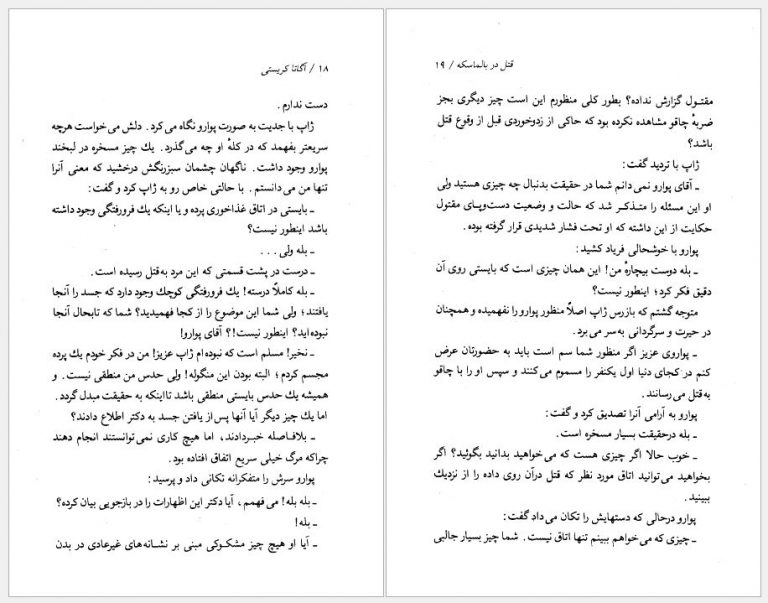 ۱۸ / آگاتا کریستی
دست ندارم.
ژاپ با جدیت به صورت پوارو نگاه می‌کرد. دلش می‌خواست هرچه
سریعتر بفهمد که در کلهٔ او چه می‌گذرد. یك چیز مسخره در لبخند
پوارو وجود داشت. ناگهان چشمان سبزرنگش درخشید که معنی آنرا
تنها من می‌دانستم. با حالتی خاص رو به ژاپ کرد و گفت:
ـ بایستی در اتاق غذاخوری پرده و یا اینکه یك فرورفتگی وجود داشته
باشد اینطور نیست؟
ـ بله ولی...
ـ درست در پشت قسمتی که این مرد به‌قتل رسیده است.
ـ بله کاملاً درسته! یك فرورفتگی کوچك وجود دارد که جسد را آنجا
یافتند؛ ولی شما این موضوع را از کجا فهمیدید؟ شما که تابحال آنجا
نبوده‌اید؟ اینطور نیست!؟ آقای پوارو!
ـ نخیر! مسلم است که نبوده‌ام ژاپ عزیز! من در فکر خودم یك پرده
مجسم کردم؛ البته بودن این منگوله! ولی حدس من منطقی نیست. و
همیشه یك حدس بایستی منطقی باشد تااینکه به حقیقت مبدل گردد.
اما یك چیز دیگر آیا آنها پس‌از یافتن جسد به دکتر اطلاع دادند؟
ـ بلافـاصله خبـردادند، اما هیچ کاری نمی‌توانستند انجام دهند
چراکه مرگ خیلی سریع اتفاق افتاده بود.
پوارو سرش را متفکرانه تکانی داد و پرسید:
ـ بله بله! می‌فهمم، آیا دکتر این اظهارات را در بازجویی بیان کرده؟
ـ بله!
ـ آیا او هیچ چیز مشکـوکی مبنی بر نشانه‌های غیرعادی در بدن
قتل در بالماسکه / ۱۹
مقتـول گزارش نداده؟ بطور کلی منظورم این است چیز دیگری بجز
ضربهٔ چاقو مشاهده نکرده بود که حاکی از زدوخوردی قبل از وقوع قتل
باشد؟
ژاپ با تردید گفت:
ـ آقای پوارو نمی‌دانم شما در حقیقت بدنبال چه چیزی هستید ولی
او این مسئله را متـذکـر شد که حالت و وضعیت دست‌وپـای مقتول
حکایت از این داشته که او تحت فشار شدیدی قرار گرفته بوده.
پوارو با خوشحالی فریاد کشید:
ـ بله دوست بیچارهٔ من! این همان چیزی است که بایستی روی آن
دقیق فکر کرد؛ اینطور نیست؟
متوجه گشتم که بازرس ژاپ اصلاً منظور پوارو را نفهمیده و همچنان
در حیرت و سرگردانی به‌سر می‌برد.
ـ پواروی عزیز اگر منظور شما سم است باید به حضورتان عرض
کنم در کجای دنیا اول یکنفر را مسموم می‌کنند و سپس او را با چاقو
به قتل می‌رسانند.
پوارو به آرامی آنرا تصدیق کرد و گفت:
ـ بله درحقیقت بسیار مسخره است.
ـ خوب حالا اگر چیزی هست که می‌خواهید بدانید بگوئید؟ اگر
بخواهید می‌توانید اتاق مورد نظر که قتل درآن روی داده را از نزدیك
ببینید.
پوارو درحالی که دستهایش را تکان می‌داد گفت:
ـ چیزی که می‌خواهم ببینم تنها اتاق نیست. شما چیز بسیار جالبی